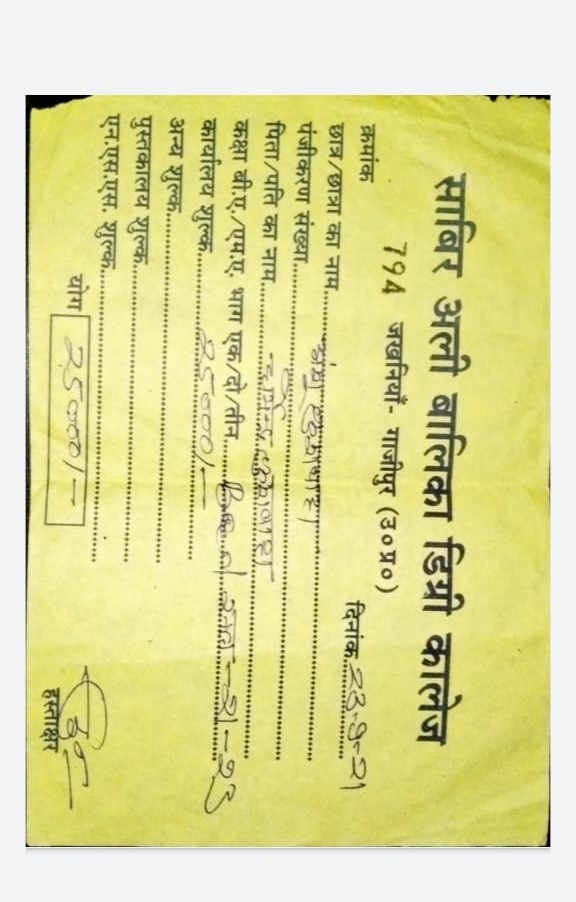 साबिर अली बालिका डिग्री कालेज
794 जखनियाँ- गाजीपुर (उ०प्र०)
क्रमांक दिनांक 23-9-21
छात्र/छात्रा का नाम
पंजीकरण संख्या
पिता/पति का नाम
कक्षा बी.ए./एम.ए. भाग एक/दो/तीन -21-23
कार्यालय शुल्क 25000/-
अन्य शुल्क
पुस्तकालय शुल्क
एन.एस.एस. शुल्क
योग 25000/-
हस्ताक्षर